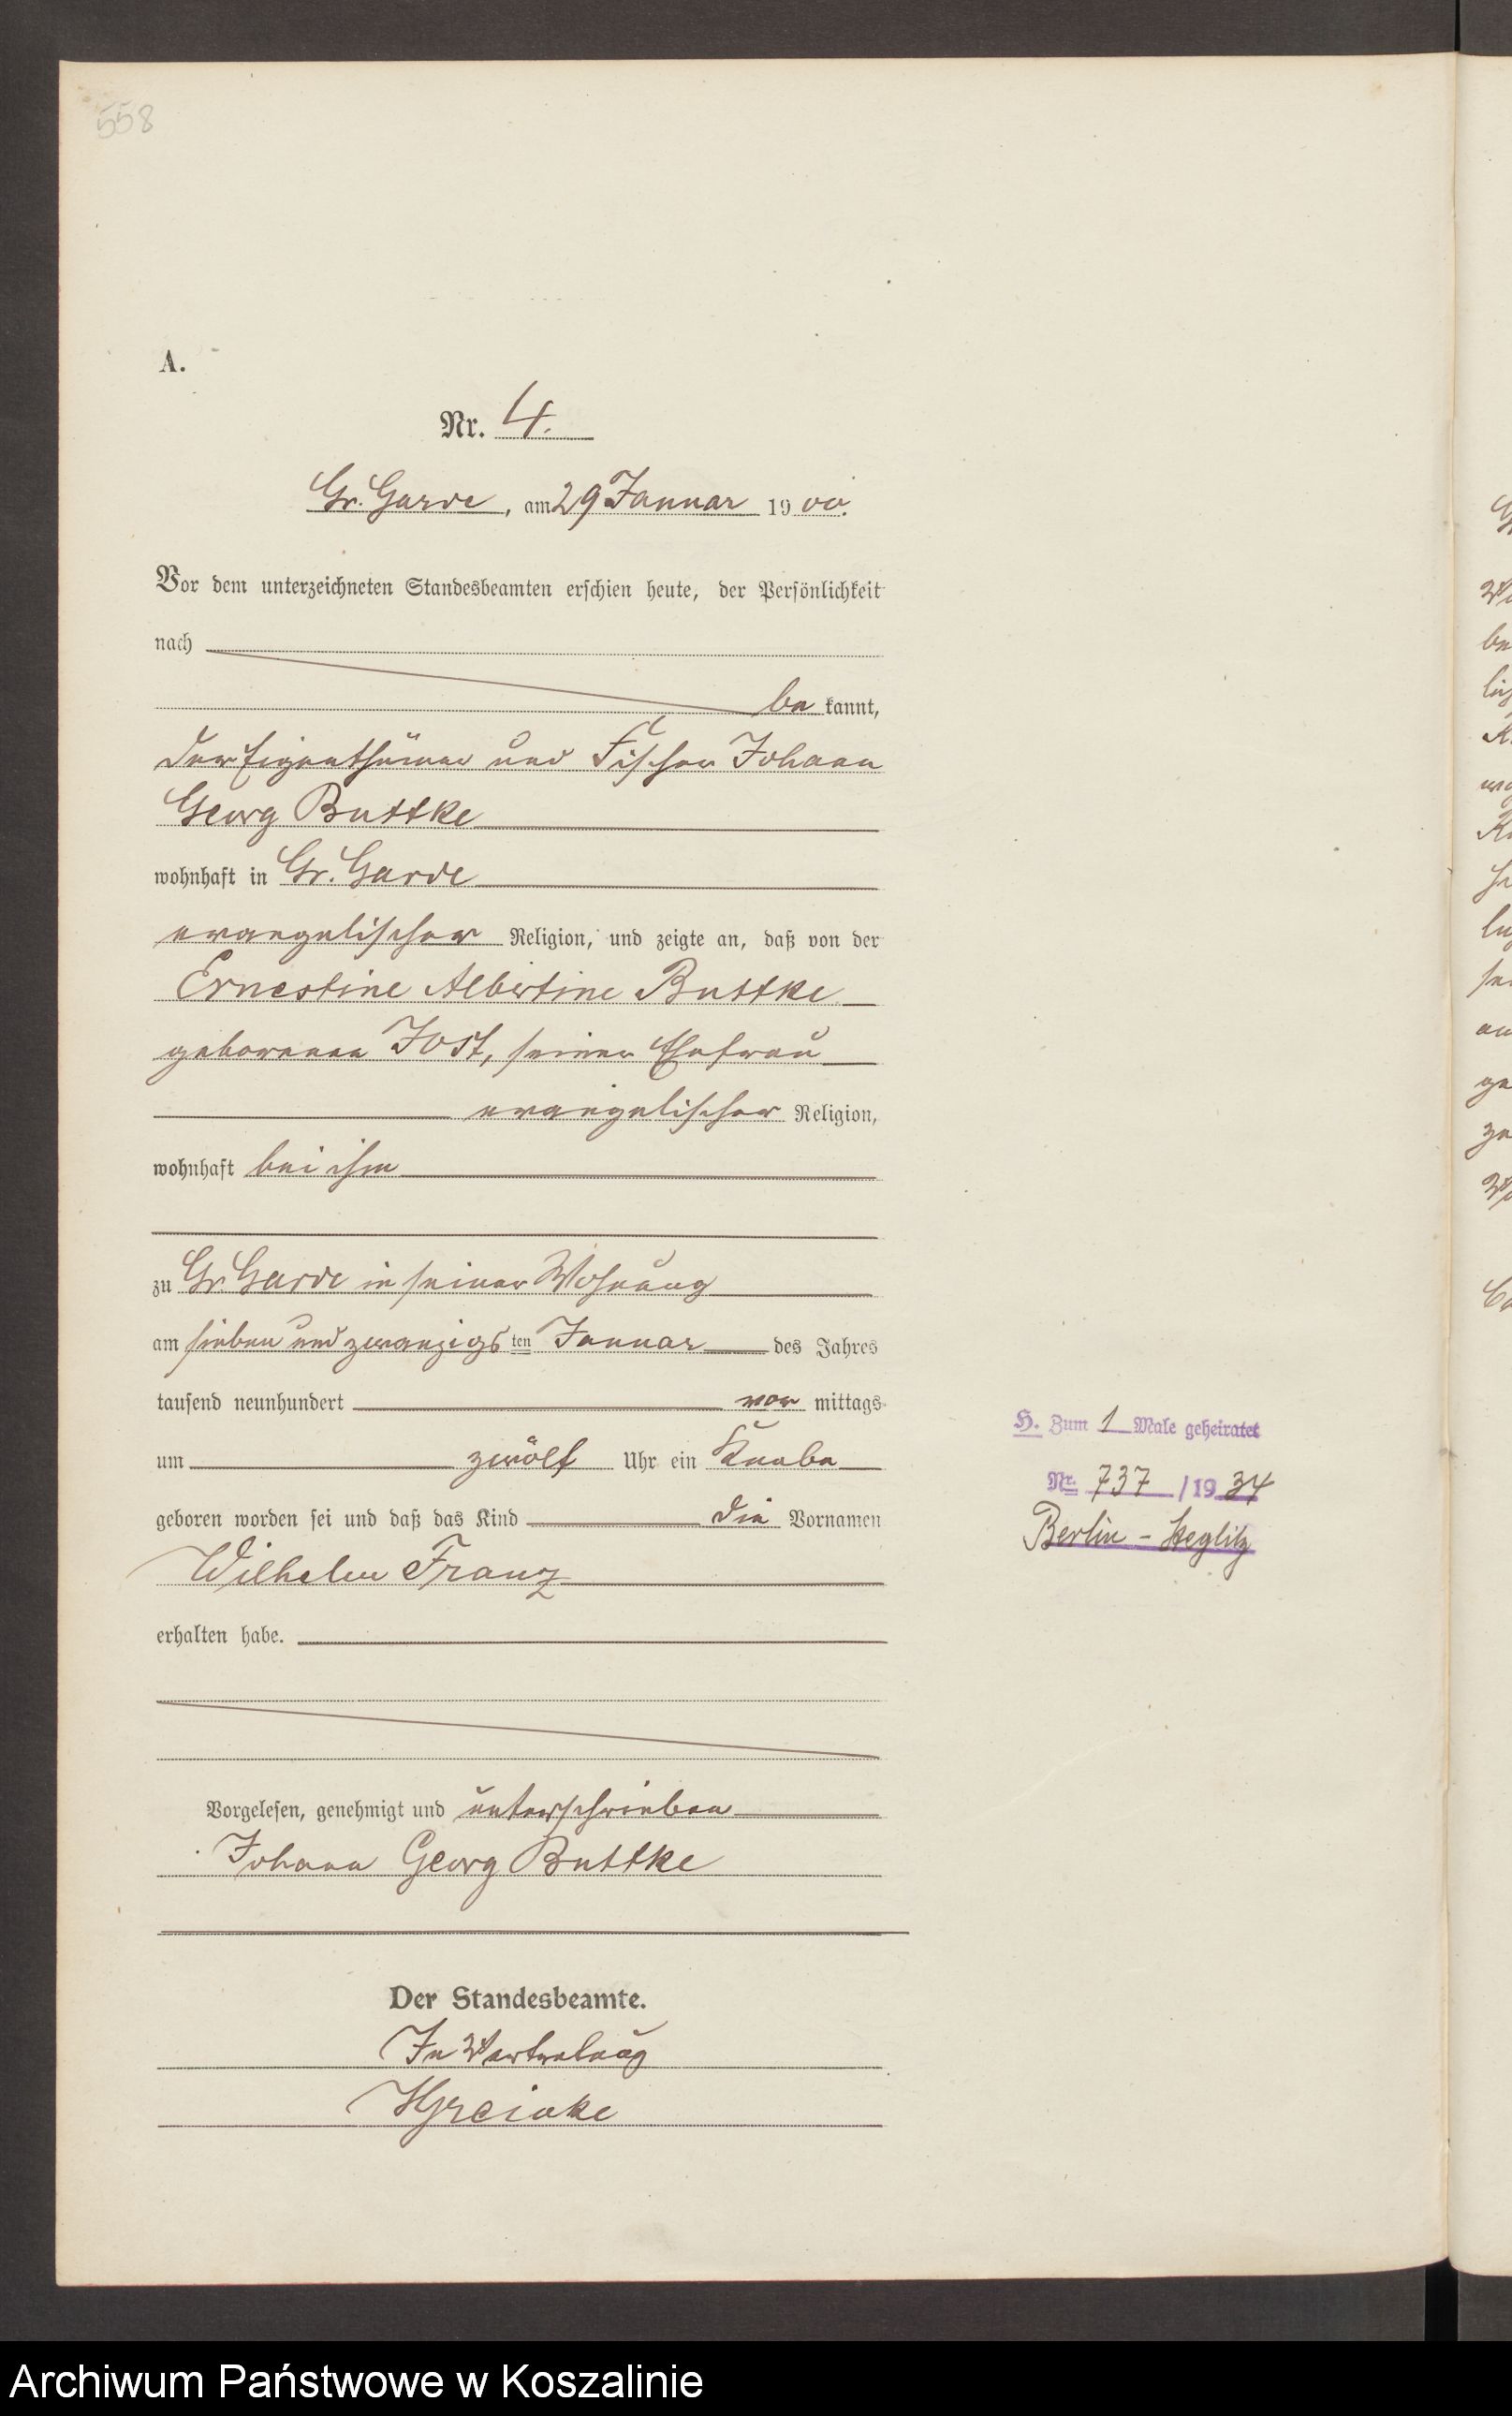 558
A.
Nr. 4.
Gr. Garde, am 29 Januar 1900.
Vor dem unterzeichneten Standesbeamten erschien heute, der Persönlichkeit
nach
be kannt,
der Eigenthümer und Fischer Johann
Georg Buttke
wohnhaft in Gr. Garde
evangelischer Religion, und zeigte an, daß von der
Ernestine Albertine Buttke
geborenen Jost, seiner Ehefrau
evangelischer Religion,
wohnhaft bei ihm
zu Gr. Garde in seiner Wohnung
am sieben und zwanzigsten Januar des Jahres
tausend neunhundert vor mittags
um zwölf Uhr ein Knabe
geboren worden sei und daß das Kind die Vornamen
Wilhelm Franz
erhalten habe.
Vorgelesen, genehmigt und unterschrieben
Johann Georg Buttke
Der Standesbeamte.
In Vertretung
H. Zum 1 Male geheiratet
Nr. 737 / 19 34
Berlin - Steglitz
Archiwum Państwowe w Koszalinie